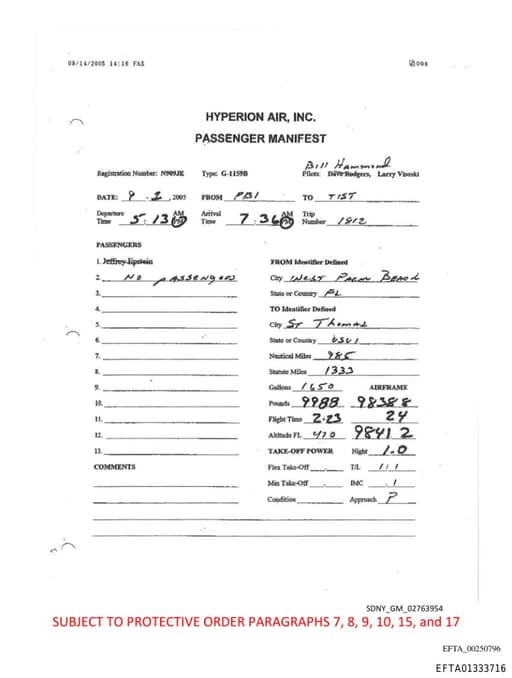 09/14/2005 14:16 FAX 004
HYPERION AIR, INC.
PASSENGER MANIFEST
Bill Hammond
Registration Number: N909JE Type: G-1159B Pilots: Dave Rodgers, Larry Visoski
DATE: 9-2, 2005 FROM PBI TO TIST
Departure Time 5:13 AM PM Arrival Time 7:36 AM PM Trip Number 1812
PASSENGERS
1. Jeffrey Epstein FROM Identifier Defined
2. NO PASSENGERS City WEST PALM BEACH
3. State or Country FL
4. TO Identifier Defined
5. City ST Thomas
6. State or Country USVI
7. Nautical Miles 985
8. Statute Miles 1333
9. Gallons 1650 AIRFRAME
10. Pounds 9988 98388
11. Flight Time 2:23 24
12. Altitude FL 470 98412
13. TAKE-OFF POWER Night 1.0
COMMENTS Flex Take-Off T/L 1/1
Min Take-Off IMC .1
Condition Approach P
SDNY_GM_02763954
SUBJECT TO PROTECTIVE ORDER PARAGRAPHS 7, 8, 9, 10, 15, and 17
EFTA_00250796
EFTA01333716